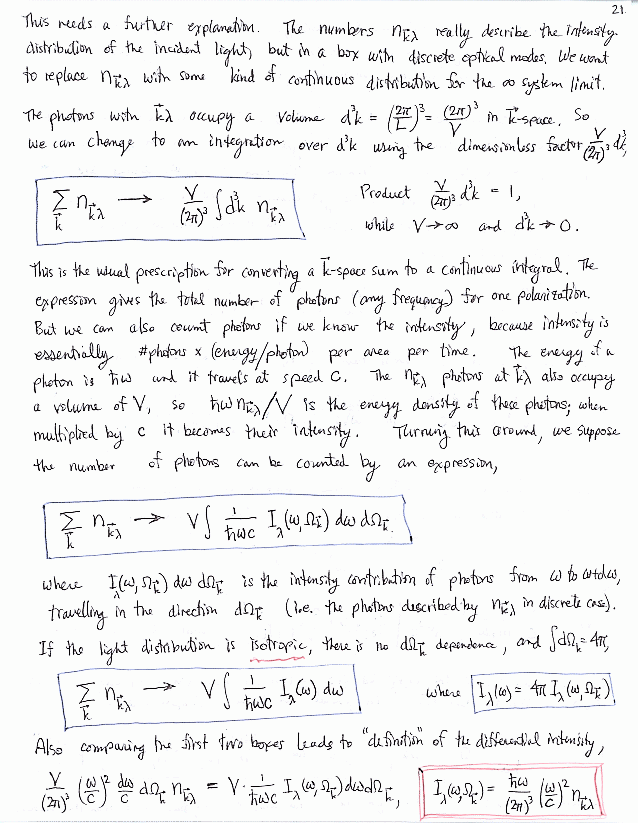 21.
This needs a further explanation. The numbers n_k⃗λ really describe the intensity
distribution of the incident light, but in a box with discrete optical modes. We want
to replace n_k⃗λ with some kind of continuous distribution for the ∞ system limit.
The photons with k⃗λ occupy a volume d³k = (2π/L)³ = (2π)³/V in k⃗-space. So
we can change to an integration over d³k using the dimensionless factor V/(2π)³ d³k,
Σ_k⃗ n_k⃗λ → V/(2π)³ ∫d³k n_k⃗λ
Product V/(2π)³ d³k = 1,
while V→∞ and d³k→0.
This is the usual prescription for converting a k⃗-space sum to a continuous integral. The
expression gives the total number of photons (any frequency) for one polarization.
But we can also count photons if we know the intensity, because intensity is
essentially #photons × (energy/photon) per area per time. The energy of a
photon is ħω and it travels at speed c. The n_k⃗λ photons at k⃗λ also occupy
a volume of V, so ħω n_k⃗λ/V is the energy density of these photons; when
multiplied by c it becomes their intensity. Turning this around, we suppose
the number of photons can be counted by an expression,
Σ_k⃗ n_k⃗λ → V∫ 1/ħωc I_λ(ω,Ω_k⃗) dω dΩ_k⃗
where I_λ(ω,Ω_k⃗) dω dΩ_k⃗ is the intensity contribution of photons from ω to ω+dω,
travelling in the direction dΩ_k⃗ (i.e. the photons described by n_k⃗λ in discrete case).
If the light distribution is isotropic, there is no dΩ_k⃗ dependence, and ∫dΩ_k⃗ = 4π,
Σ_k⃗ n_k⃗λ → V∫ 1/ħωc I_λ(ω) dω
where I_λ(ω) = 4π I_λ(ω,Ω_k⃗)
Also comparing the first two boxes leads to "definition" of the differential intensity,
V/(2π)³ (ω/c)² dω/c dΩ_k⃗ n_k⃗λ = V · 1/ħωc I_λ(ω,Ω_k⃗) dω dΩ_k⃗,
I_λ(ω,Ω_k⃗) = ħω/(2π)³ (ω/c)² n_k⃗λ